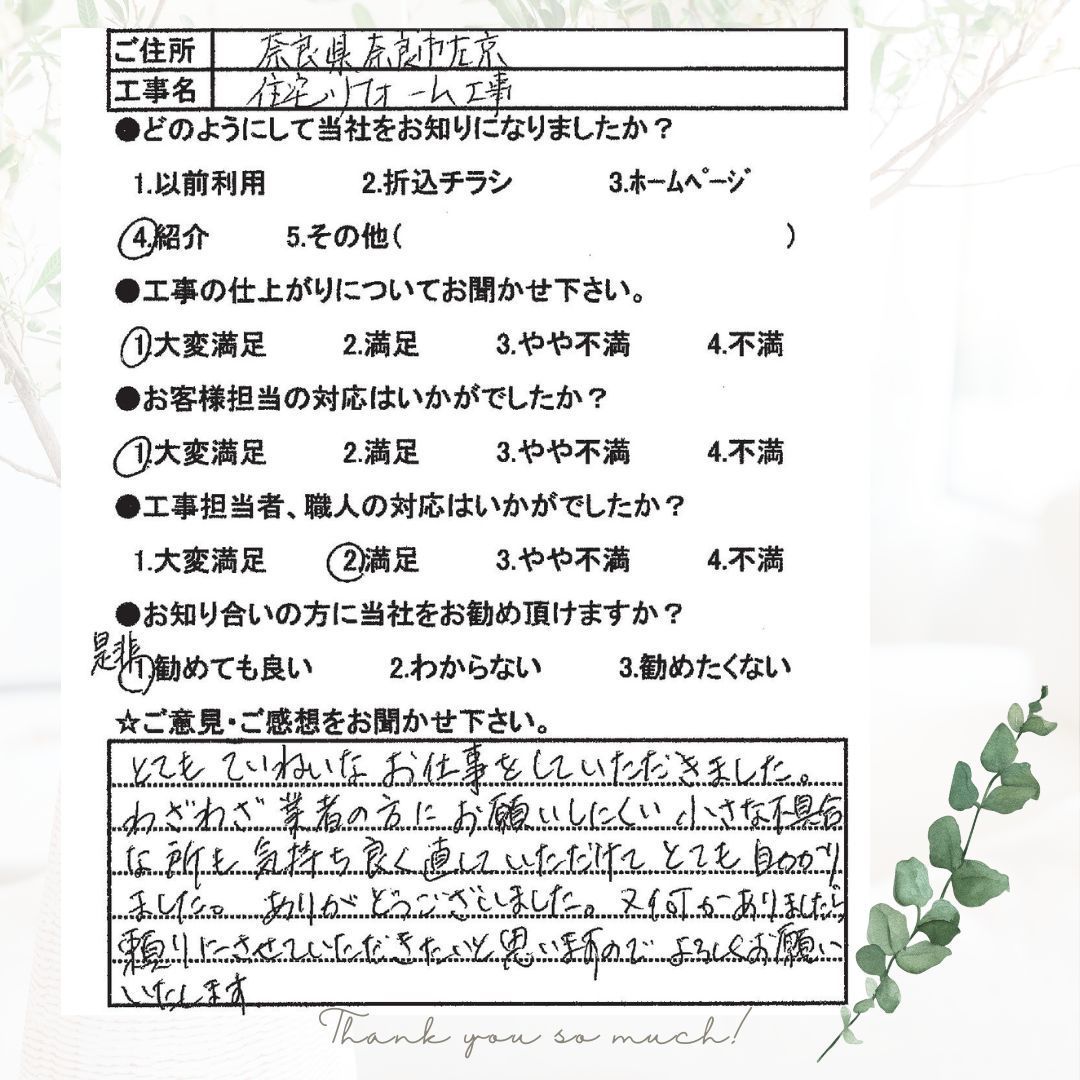 ご住所 奈良県奈良市左京
工事名 住宅リフォーム工事
●どのようにして当社をお知りになりましたか？
1.以前利用 2.折込チラシ 3.ホームページ
4.紹介 5.その他( )
●工事の仕上がりについてお聞かせ下さい。
1.大変満足 2.満足 3.やや不満 4.不満
●お客様担当の対応はいかがでしたか？
1.大変満足 2.満足 3.やや不満 4.不満
●工事担当者、職人の対応はいかがでしたか？
1.大変満足 2.満足 3.やや不満 4.不満
●お知り合いの方に当社をお勧め頂けますか？
是非 1.勧めても良い 2.わからない 3.勧めたくない
☆ご意見・ご感想をお聞かせ下さい。
とても ていねいな お仕事をしていただきました。
わざわざ 業者の方に お願いしにくい 小さな不具合
な所も 気持ち良く直していただけて とても 助かり
ました。 ありがとうございました。 又何かありましたら
頼りにさせていただきたいと思いますので よろしくお願い
いたします
Thank you so much!